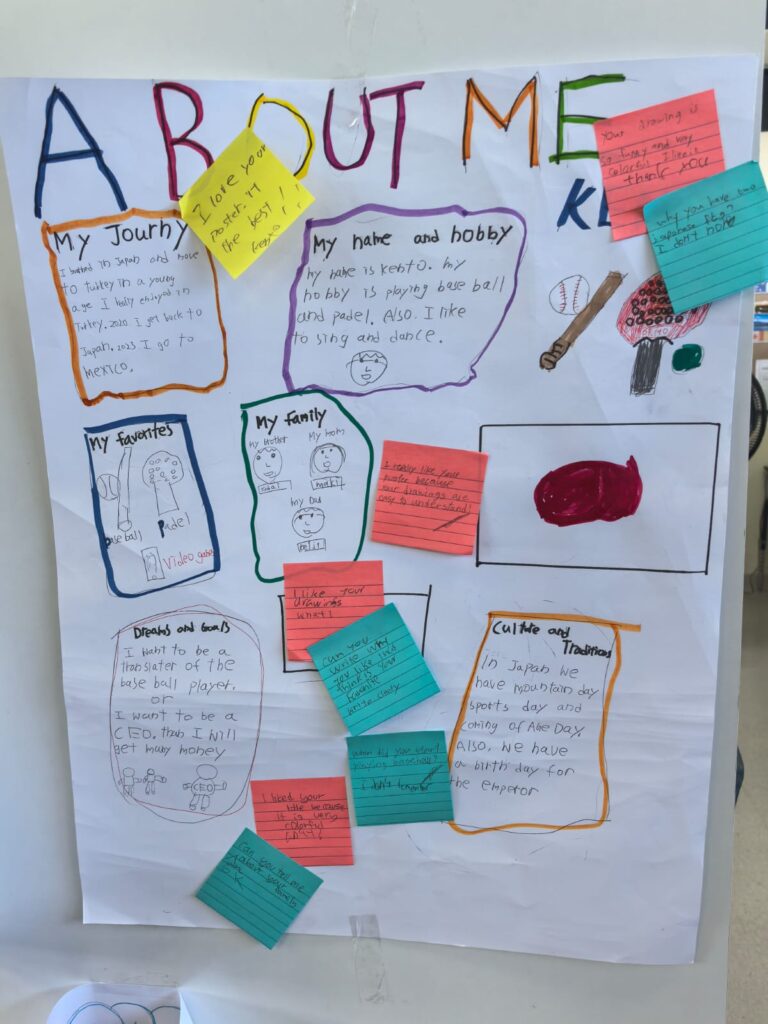 ABOUT ME
KE
Your drawing is
so funny and very
colorful
thank you
why you have two
Japanese
I don't
I love your
poster. It
the best!!
My Journy
I borned in Japan and move
to turkey in a young
age I enjoyed in
Turkey. 2020 I get back to
Japan. 2023 I go to
Mexico.
My name and hobby
my name is kento. my
hobby is playing base ball
and padel. Also. I like
to sing and dance.
My favorites
base ball
Padel
Video games
My family
my brother
My mom
my Dad
I really like your
poster because
your drawings are
easy to understand!
I like your
drawings
Can you
write why
you like
favorite
write clearly
Dreams and Goals
I want to be a
translater of the
base ball player.
or
I want to be a
CEO. than I will
get many money
CEO
Culture and
Traditions
In Japan we
have mountain day
sports day and
coming of Age Day.
Also, we have
a birth day for
the emperor
when did you start
playing baseball?
I don't remember
I liked your
title because
it is very
colorful
Can you tell me
about your
family
OK